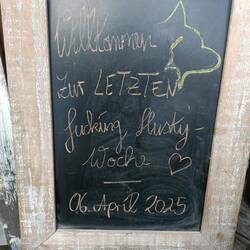 Willkommen
zur LETZTEN
fucking Husky-
Woche
06. April 2025